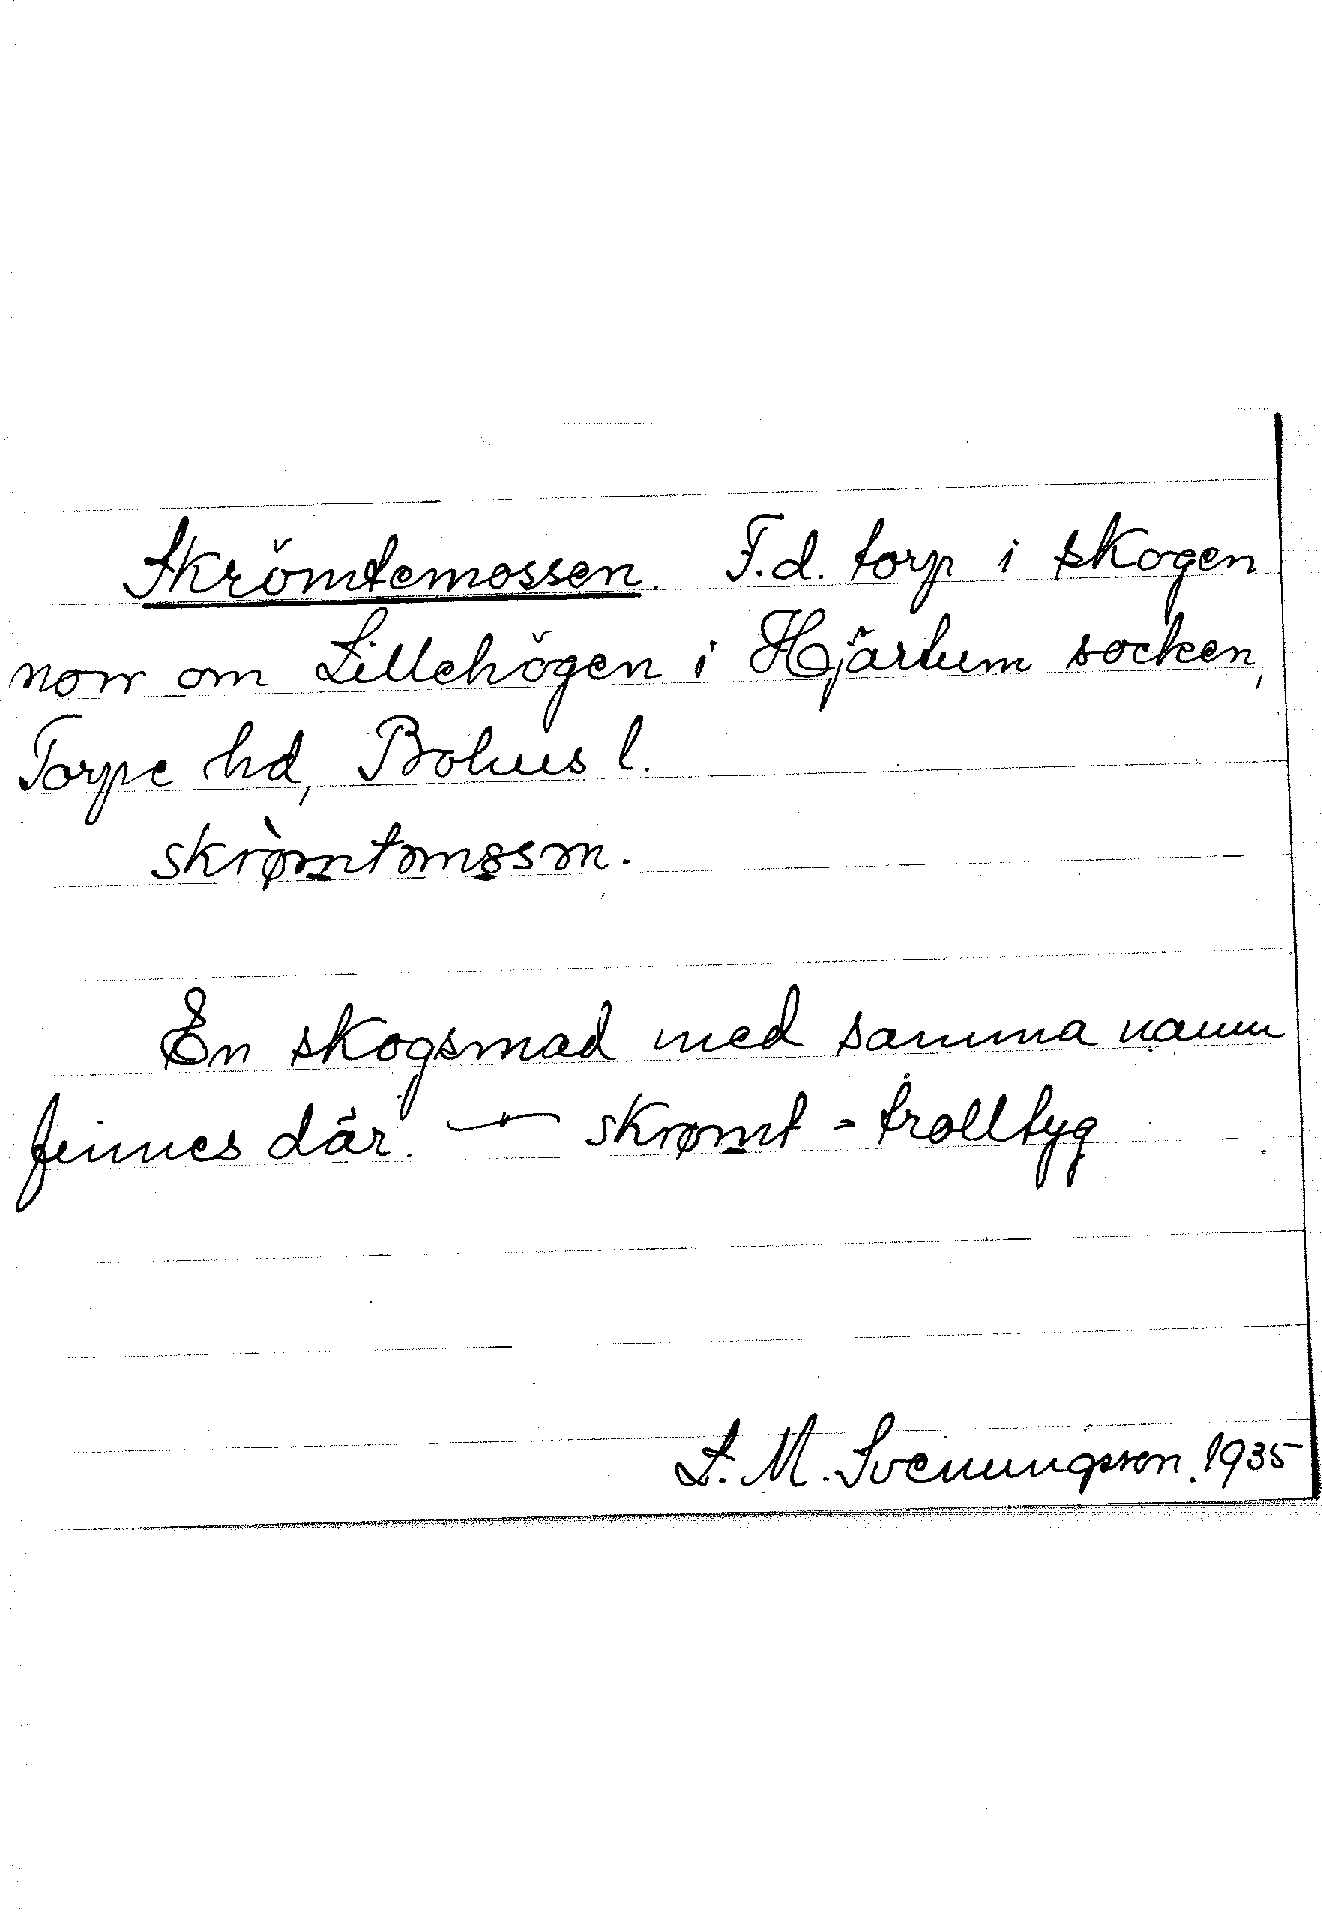 Skrömtemossen. F.d. torp i skogen
norr om Lillehögen i Hjärtum socken,
Torpe hd, Bohus l.
skrømtmssn.
En skogsmad med samma namn
finnes där. — skrømt - trolltyg
S. M. Svenungsson. 1935